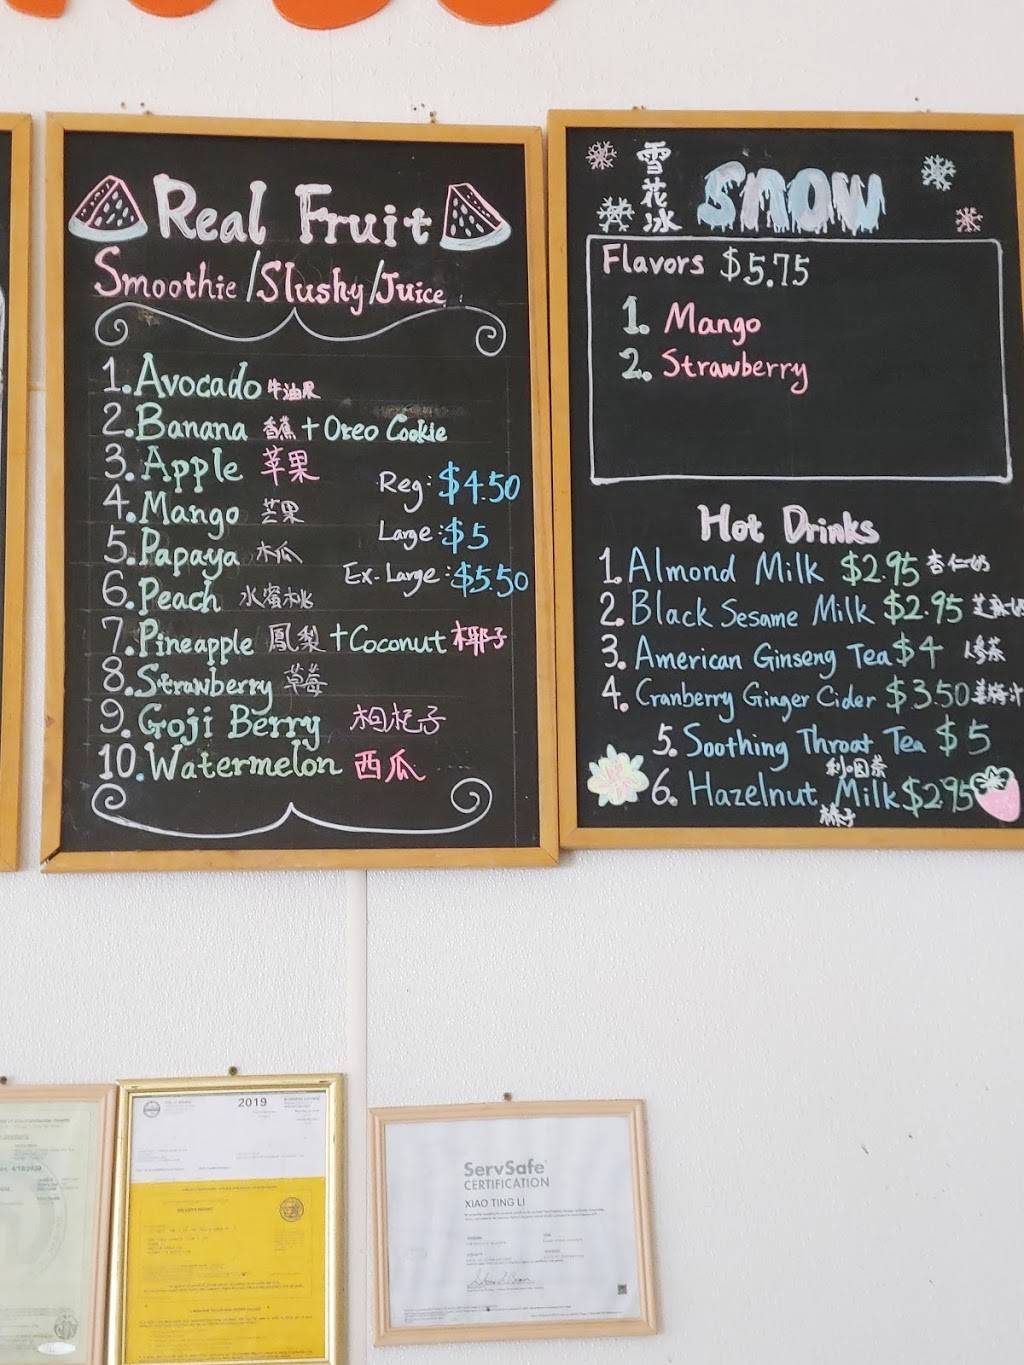 Real Fruit
Smoothie/Slushy/Juice
1.Avocado 牛油果
2.Banana 香蕉+Oreo Cookie
3.Apple 苹果
4.Mango 芒果
5.Papaya 木瓜
6.Peach 水蜜桃
7.Pineapple 鳳梨+Coconut 椰子
8.Strawberry 草莓
9.Goji Berry 枸杞子
10.Watermelon 西瓜
Reg: $4.50
Large: $5
Ex-Large: $5.50
雪花冰 SNOW
Flavors $5.75
1. Mango
2. Strawberry
Hot Drinks
1. Almond Milk $2.95 杏仁奶
2. Black Sesame Milk $2.95 芝麻奶
3. American Ginseng Tea $4
4. Cranberry Ginger Cider $3.50
5. Soothing Throat Tea $5
6. Hazelnut Milk $2.95
榛子
2019
ServSafe
CERTIFICATION
XIAO TING LI